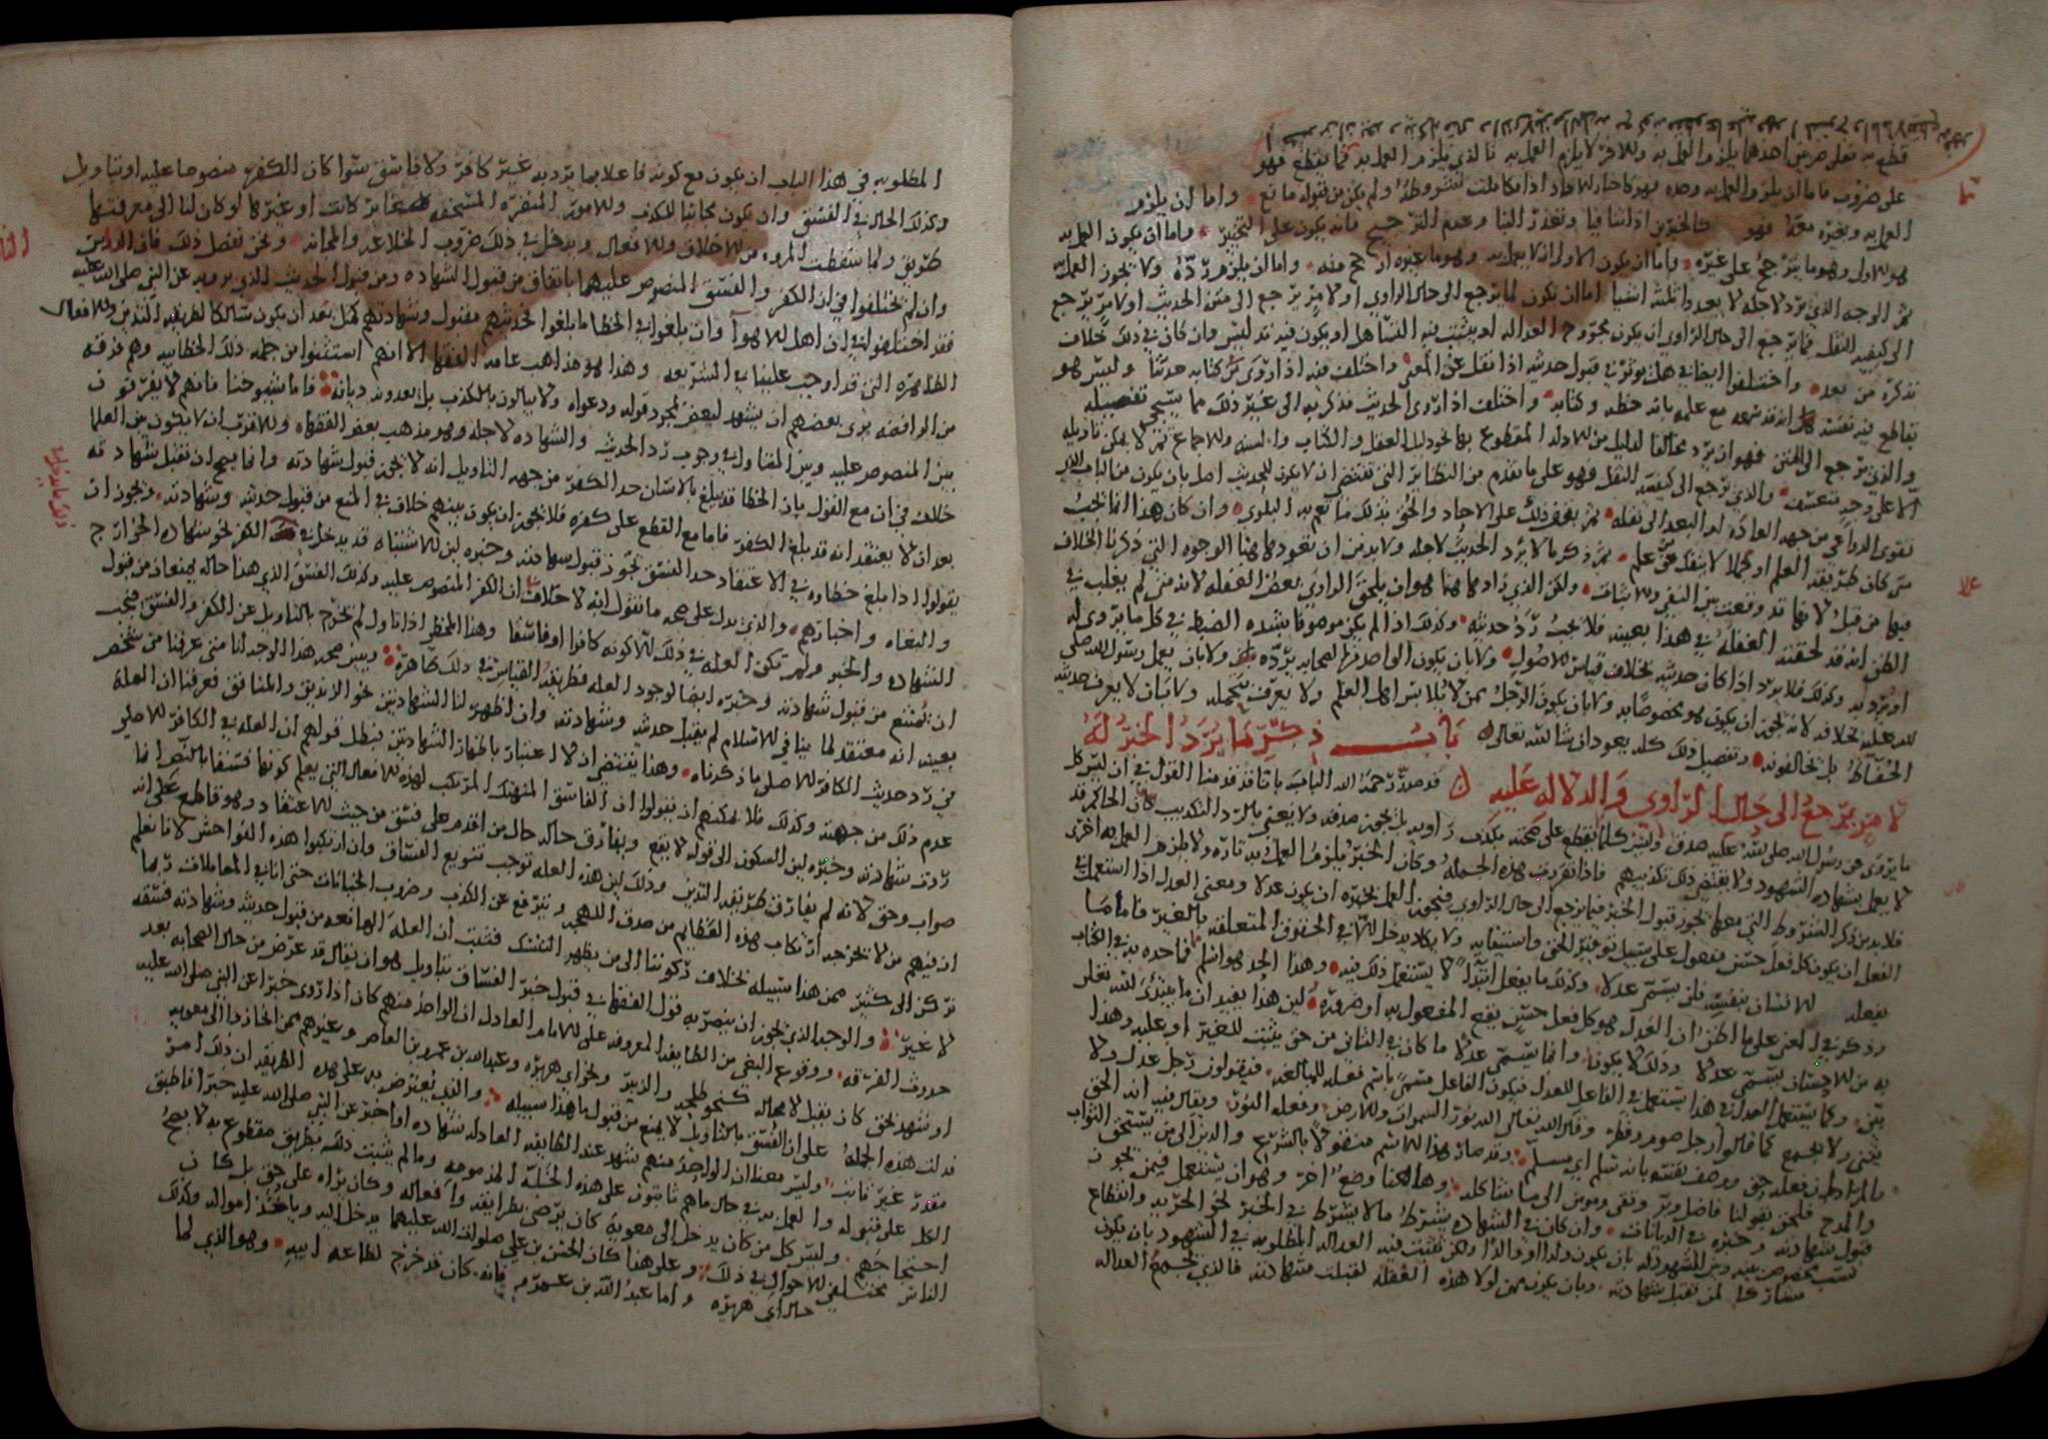 قطع به فعلى ضربين احدهما يلزم العمل به والاخر لا يلزم العمل به فالذي يلزم العمل به فيما يقطع فهو
على ضروب فاما ان يلزم العمل به وحده فهو كاخبار الاحاد اذا تكاملت شروطه ولم يكن من قبوله مانع واما ان يلزم
العمل به وبغيره معه فهو كالخبرين اذا تنافيا وتعذر البنا وعدم الترجيح فانه يكون على التخيير واما ان يكون العمل به
هو الاولى وهو ما يترجح على غيره واما ان يكون الاولى ان لا يعمل به وهو ما غيره ارجح منه واما ان يلزم رده ولا يجوز العمل به
ثم الوجه الذي يرد لاجله لا يعدو ثلثه اشيا اما ان يكون لما يرجع الى حال الراوي او لامر يرجع الى متن الحديث او لامر يرجع
الى كيفيه النقل فما يرجع الى حال الراوي ان يكون مجروح العداله او يثبت فيه التساهل او يكون فيه تدليس وان كان في ذلك خلاف
نذكره من بعد واختلفوا ايضا في هل يوثر في قبول حديثه اذا نقل على المعنى واختلف فيه اذا روى من كتابه حديثا وليس هو
بقاطع فيه بنفسه انه قد سمعه مع علمه بانه خطه وكتابه واختلف اذا روى الحديث فذكر به الى غير ذلك مما سيجي تفصيله
والذي يرجع الى المتن فهو ان يرد مخالفا لدليل من الادله المقطوع بها نحو دليل العقل والكتاب والسنه والاجماع ثم لا يمكن تاويله
الا على وجه متعسف والذي يرجع الى كيفيه النقل فهو على ما تقدم من النظائر التي تقتضي ان لا يكون للحديث اصل بان يكون من الباب الذي
تقوى الدواعي من جهه العاده او التعبد الى نقله ثم يقتصر ذلك على الاحاد والحق بذلك ما تعم به البلوى وان كان هذا انما يجب
متى كان طريقه العلم او عملا لا ينفك عن علم ثم ذكر ما لا يرد الحديث لاجله ولا بد من ان تعود ههنا الوجوه التي ذكرنا الخلاف
فيها من قبل لانها قد وقعت بين النفي والاثبات ولكن الذي زادوها ههنا هو ان يلحق الراوي بعض الغفله لانه متى لم يغلب في
الظن انه قد لحقته الغفله في هذا بعينه فلا يجب رد حديثه وكذلك اذا لم يكن موصوفا بشده الضبط في كل ما يروى له
او يرويه وكذلك فلا يرد اذا كان حديثه بخلاف قياس الاصول ولا بان يكون الواحد من الصحابه يرده ولا بان يعمل رسول الله صلى
الله عليه بخلافه لانه يجوز ان يكون هو مخصوصا به ولا بان يكون الرجل ممن لا يلابس اهل العلم ولا يعرف بتحمله ولا بان لا يعرف حديثه
الحفاظ بل يخالفونه وتفصيل ذلك كله يعود ان شا الله تعالى باب ذكر ما يرد الخبر له
لامر يرجع الى حال الراوي والدلاله عليه قد صدر رحمه الله الباب بانا قد قدمنا القول في ان ليس كل
ما يروى عن رسول الله صلى الله عليه صدقا وليس كلما يقطع على صحته يكذب راويه بل يجوز صدقه ولا يعنى بالرد التكذيب كان الحاكم قد
لا يعمل بشهاده الشهود ولا يقتضي ذلك تكذيبهم فاذا تقررت هذه الجمله وكان الخبر يلزم العمل به تاره ولا يلزم العمل به اخرى
فلا بد من ذكر الشروط التي معها يجوز قبول الخبر فيما يرجع الى حال الراوي فيجوز العمل بخبره ان يكون عدلا ومعنى العدل اذا استعمل في
الفعل ان يكون كل فعل حسن مفعول على سبيل توفير الحق واستيفائه ولا يكاد يدخل الا في الحقوق المتعلقه بالغير فاما ما
يفعله الانسان بنفسه فلن يسمى عدلا وكذلك ما يفعل ابتدا لا يستعمل ذلك فيه وهذا الحد هو اسلم مما حده به في الكتاب
وذكر في المغني على ما اظن ان العدل هو كل فعل حسن ينفع المفعول به او ضره لين هذا يفيد ان ما يبتدئ الله تعالى
به من الاحسان يسمى عدلا وذلك لا يكون وانما يسمى عدلا ما كان في الثاني من حق يثبت للغير او عليه وهذا
بين وكما يستعمل العدل في هذا يستعمل في الفاعل للعدل فيكون الفاعل مسمى باسم فعله للمبالغه فيقولون رجل عدل ولا
يثنى ولا يجمع كما قالوا رجل صوم وفطر وقال الله تعالى الله نور السموات والارض وفعله النور ويقال فيه انه الحق
والمراد ان فعله حق ووصف نفسه بانه سلم اي مسلم وقد صار هذا الاسم منقولا بالشرع والدين الى من يستحق الثواب
والمدح فلحق بقولنا فاضل وبر وتقي ومومن الى ما شاكله وها هنا وضع اخر وهو ان يستعمل فيمن يجوز
قبول شهادته وخبره في الديانات وان كان في الشهاده يشترط ما لا يشترط في الخبر نحو الحريه وانقطاع
نسب مخصوص بينه وبين المشهود له بان يكون ولدا او والدا ولكن تثبت فيه العداله المطلوبه في الشهود بان يكون
مشاركا لمن تقبل شهادته وبان يكون ممن لولا هذه العقله لقبلت شهادته فالذي يجمع العداله
المطلوبه في هذا الباب ان يكون مع كونه فاعلا بما يرد به غير كافر ولا فاسق سوا كان الكفر منصوصا عليه او بتاويل
وكذلك الحال في الفسق وان يكون مجانبا للكذب وللامور المنفره المستخفه صغائر كانت او غيرها لو كان لنا الى معرفتها
طريق ولما اسقطت المروه من الاخلاق والافعال ويدخل في ذلك ضروب الخلاعه والمجانه ونحن نفصل ذلك فان الناس
وان لم يختلفوا في ان الكفر والفسق المنصوص عليهما بانفاق من قبول الشهاده ومن قبول الحديث الذي يرويه عن النبي صلى الله عليه
فقد اختلفوا في ان اهل الاهوا وان بلغوا في الخطا ما بلغوا فحديثهم مقبول وشهادتهم كمثل بعد ان يكون متمسكا بطريقه التدين والافعال
الظاهره التي قد اوجب علينا في الشريعه وهذا هو مذاهب عامه الفقها الا انهم استثنوا من جمله ذلك الخطابيه وهم فرقه
من الرافضه يرى بعضهم ان يشهد لبعض بمجرد قوله ودعواه ولا يبالون بالكذب بل يعدونه ديانه فاما شيوخنا فانهم لا يفرقون
بين المنصوص عليه وبين المتاول في وجوب رد الحديث والشهاده لاجله وهو مذهب بعض الفقهاء والاقرب ان لا يكون بين العلما
خلاف في ان مع القول بان الخطا قد يبلغ بالانسان حد الكفر من جهه التاويل انه لا يجوز قبول شهادته وانما يصح ان تقبل شهادته
بعد ان لا يعتقد انه قد بلغ الكفر فاما مع القطع على كفره فلا يجوز ان يكون بينهم خلاف في المنع من قبول حديثه وشهادته ويجوز ان
يقولوا اذا بلغ خطاوه في الاعتقاد حد الفسق نجوز قبول شهادته وخبره لين الاشتباه قد يدخل في الكفر نحو شهاده الخوارج
والبغاه واخبارهم والذي يدل على صحه ما نقول انه لا خلاف ان الكفر المنصوص عليه وكذلك الفسق الذي هذا حاله يمنعان من قبول
الشهاده والخبر ولم تكن العله في ذلك الا كونه كافرا او فاسقا وهذا المخطي اذا تاول لم يخرج بالتاويل عن الكفر والفسق فيجب
ان تمتنع من قبول شهادته وخبره ايضا لوجود العله فطريقه القياس في ذلك ظاهره ويبين صحه هذا الوجه انا متى عرفنا من شخص
بعينه انه معتقد لما ينافي الاسلام لم يقبل حديثه وشهادته وان اظهر لنا الشهادتين نحو الزنديق والمنافق فعرفنا ان العله
في رد حديث الكافر الاصلي ما ذكرناه وهذا يقتضي ان لا اعتبار باظهار الشهادتين فبطل قولهم ان العله في الكافر الاصلي
عدم ذلك من جهته وكذلك فلا يمكنهم ان يقولوا ان الفاسق المنهتك المرتكب لهذه الافعال التي يعلم كونها فسقا بالنص انما
ردت شهادته وخبره لين السكون الى قوله لا يقع ويفارق حاله حال من اقدم على فسق من حيث الاعتقاد وهو قاطع على انه
صواب وحق لانه لم يفارق طريقه التدين وذلك لين هذه العله توجب تنويع الفساق وان ارتكبوا هذه الفواحش لانا نعلم
ان فيهم من لا يخرجه ارتكاب هذه العظايم من صدق اللهجه والترفع عن الكذب وضروب الخيانات حتى انا في المعاملات ربما
نركن الى كثير ممن هذا سبيله بخلاف ركوننا الى من يظهر النسك فثبت ان العله المانعه من قبول حديثه وشهادته فسقه
لا غير والوجه الذي يجوز ان ينصر به قول الفقها في قبول خبر الفساق بتاويل هو ان يقال قد عرض من حال الصحابه بعد
حدوث الفرقه ووقوع البغي من الطايفه المعروفه على الامام العادل ان الواحد منهم كان اذا روى خبرا عن النبي صلى الله عليه
او شهد لحق كان يقبل لا محاله كنحو طلحه والزبير ونحو ابي هريره وعبد الله بن عمرو بن العاص وغيرهم ممن انحازوا الى معويه
فدلت هذه الجمله على ان الفسق بالتاويل لا يمنع من قبول ما هذا سبيله والذي يعترض به على هذه الطريقه ان ذلك امر
مقدر غير ثابت وليس معنا ان الواحد منهم شهد عند الطايفه العادله شهاده او اخبر عن النبي صلى الله عليه خبرا فاطبق
الكل على قبوله والعمل به في حال ما هم ثابتون على هذه الخله المذمومه وما لم يثبت ذلك بطريق مقطوع به لا يصح
احتجاجهم وليس كل من كان يدخل الى معويه كان يرضى بطرايقه وافعاله وكان يراه على حق بل كان
الناس مختلفي الاحوال في ذلك وعلى هذا كان الحسن بن علي صلوات الله عليهما يدخل اليه وياخذ امواله وكذلك
حال ابي هريره واما عبد الله بن عمرو فانه كان قد خرج لطاعه ابيه وهو الذي لما